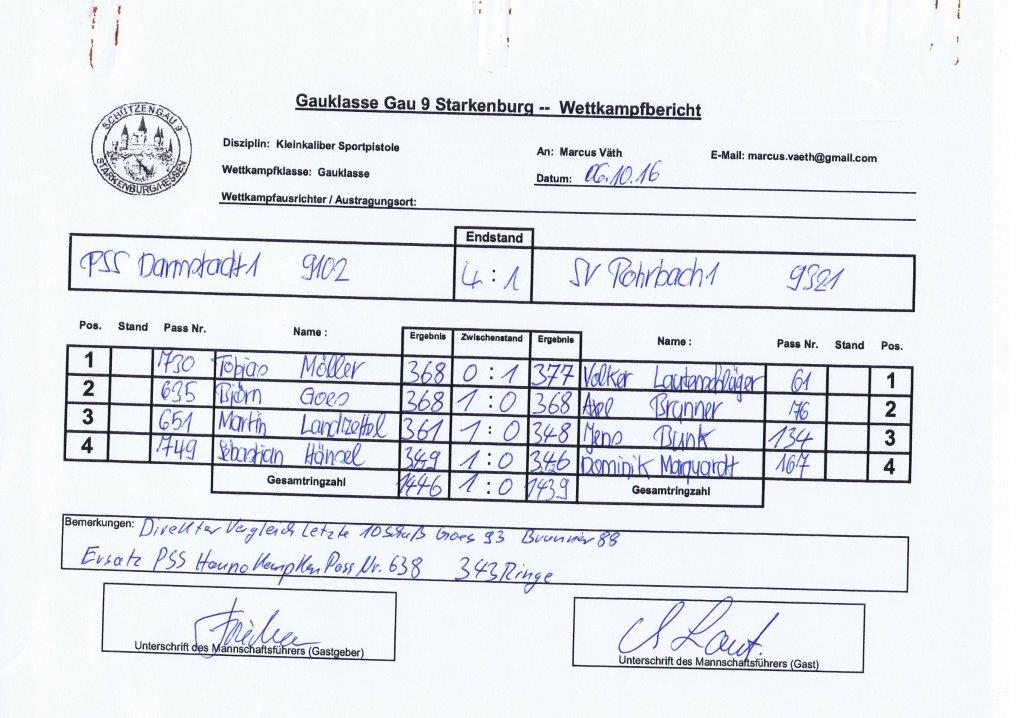 Gauklasse Gau 9 Starkenburg -- Wettkampfbericht
SCHÜTZENGAU 9
STARKENBURG/HESSEN
Disziplin: Kleinkaliber Sportpistole
An: Marcus Väth E-Mail: marcus.vaeth@gmail.com
Wettkampfklasse: Gauklasse
Datum: 06.10.16
Wettkampfausrichter / Austragungsort:
Endstand
PSS Darmstadt 1 9102 4:1 SV Rohrbach 1 9321
Pos. Stand Pass Nr. Name : Ergebnis Zwischenstand Ergebnis Name : Pass Nr. Stand Pos.
1 730 Tobias Möller 368 0 : 1 377 Volker Lautenschläger 61 1
2 635 Björn Goes 368 1 : 0 368 Axel Brunner 76 2
3 651 Martin Landzettel 361 1 : 0 348 Jens Bunk 134 3
4 749 Sebastian Hänsel 349 1 : 0 346 Dominik Marquardt 167 4
Gesamtringzahl 1446 1 : 0 1439 Gesamtringzahl
Bemerkungen: Direkter Vergleich Letzte 10 Schuß Goes 93 Brunner 88
Ersatz PSS Hanno Kempken Pass Nr. 638 343 Ringe
Unterschrift des Mannschaftsführers (Gastgeber)
Unterschrift des Mannschaftsführers (Gast)